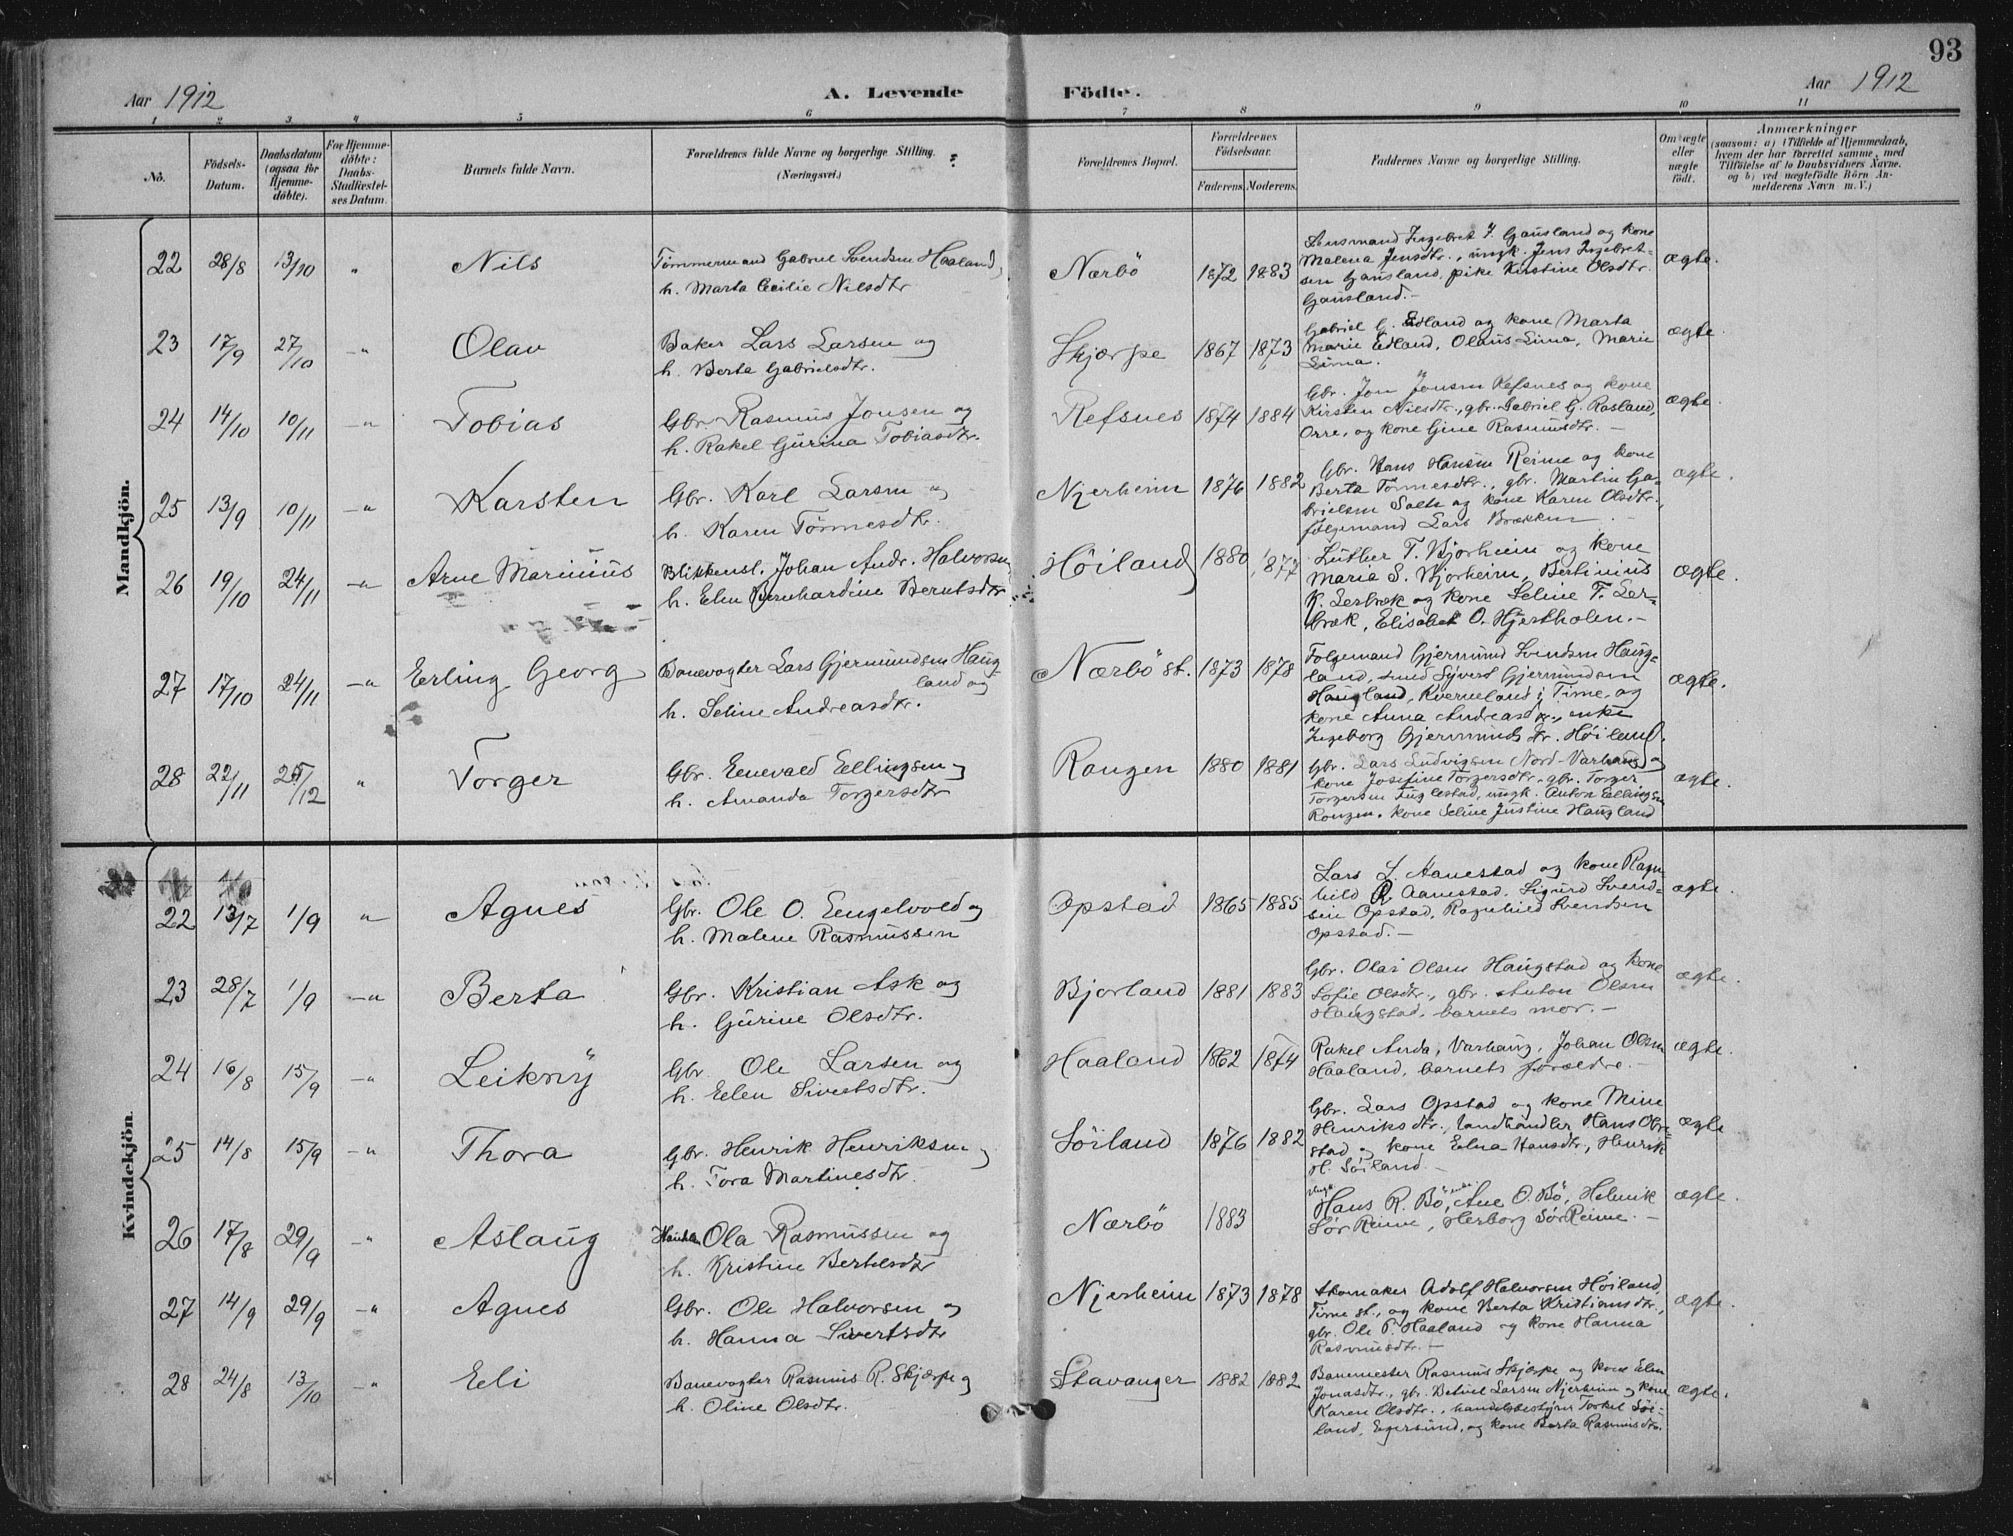 93
Aar 1912
A. Levende Födte.
Aar 1912
1 2 3 4 5 6 7 8 9 10 11
No.
Födsels-
Datum.
Daabsdatum
(ogsaa for
Hjemme-
döbte).
For Hjemme-
döbte:
Daabs-
Stadfæstel-
ses Datum.
Barnets fulde Navn.
Forældrenes fulde Navne og borgerlige Stilling.
(Næringsvei.)
Forældrenes Bopæl.
Forældrenes
Födselsaar.
Faderens. Moderens.
Faddernes Navne og borgerlige Stilling.
Om ægte
eller
uægte
födt.
Anmærkninger
(saasom: a) i Tilfælde af Hjemmedaab,
hvem der har forrettet samme, med
Tilföielse af to Daabsvidners Navne,
og b) ved uægtefödte Börn An-
melderens Navn m. V.)
Mandkjön.
22 28/8 13/10 " Nils
Tömmermand Gabriel Svendsen Haaland,
h. Marta Cecilie Nilsdtr
Nærbö 1872 1883
Lensmand Ingebret J. Gausland og kone
Malena Jensdtr., ungk. Jens Ingebret-
sen Gausland, pike Kirstine Olsdtr.
Gausland.-
ægte.
23 17/9 27/10 -"- Olav
Baker Lars Larsen og
h. Berta Gabrielsdtr.
Skjærpe 1867 1873
Gabriel G. Edland og kone Marta
Marie Edland, Olaus Sima, Marie
Sima.
ægte.
24 14/10 10/11 -"- Tobias
Gbr. Rasmus Jonsen og
h. Rakel Gurina Tobiasdtr.
Refsnes 1874 1884
Gbr. Jon Jonsen Refsnes og kone
Kirsten Nilsdtr., gbr. Gabriel G. Rosland,
Orre, og kone Gine Rasmusdtr. -
ægte.
25 13/9 10/11 -"- Karsten
Gbr. Karl Larsen og
h. Karen Tönnesdtr.
Njerheim 1876 1882
Gbr. Hans Hansen Reime og kone
Berta Tönnesdtr., gbr. Martin Ga-
brielsen Salte og kone Karen Olsdtr.,
fölgemand Lars Brækken. -
ægte.
26 19/10 24/11 -"- Arne Marinius
Blikkensl. Johan Andr. Halvorsen
h. Elen Bernhardine Berntsdtr
Höiland 1880 1877
Luther T. Bjorheim og kone
Maria S. Bjorheim, Bertinius
K. Lerbræk og kone Seline T. Ler-
bræk, Elisabet O. Hjertholen.-
ægte.
27 17/10 24/11 -"- Erling Georg
Banevogter Lars Gjermundsen Haug-
land og
h. Seline Andreasdtr.
Nærbö st. 1873 1878
Folgemand Gjermund Svendsen Haug-
land, smed Syvert Gjermundsen
Haugland, Kverneland i Time, og
kone Anna Andreasdtr., enke
Ingeborg Gjermunds dtr. Höiland.
ægte.
28 22/11 25/12 " Torger
Gbr. Enevald Ellingsen og
h. Amanda Torgersdtr
Rongen 1880 1881
Gbr. Lars Ludvigsen Nord-Varhaug og
kone Josefine Torgersdtr, gbr. Torger
Torgersen Fuglestad, ungk. Anton Ellingsen
Rongen, kone Seline Justine Haugland
ægte.
Kvindekjön.
22 13/7 1/9 " Agnes
Gbr. Ole O. Engelvold og
h. Malene Rasmussen
Opstad 1865 1885
Lars L. Aanestad og kone Ragn-
hild R. Aanestad, Sigurd Svend-
sen Opstad, Ragnhild Svendsen
Opstad. -
ægte.
23 28/7 1/9 -"- Berta
Gbr. Kristian Ask og
h. Gurine Olsdtr.
Bjorland 1881 1883
Gbr. Olai Olsen Haugstad og kone
Sofie Olsdtr., gbr. Anton Olsen
Haugstad, barnets mor. -
ægte.
24 16/8 15/9 -"- Leikny
Gbr. Ole Larsen og
h. Elen Sivertsdtr.
Haaland 1862 1874
Rakel Anda, Varhaug, Johan Olsen
Haaland, barnets forældre. -
ægte.
25 14/8 15/9 -"- Thora
Gbr. Henrik Henriksen og
h. Tora Martinesdtr.
Söiland 1876 1882
Gbr. Lars Opstad og kone Mine
Henriksdtr., landhandler Hans Obre-
stad og kone Edna Hansdtr., Henrik
H. Söiland. -
ægte.
26 17/8 29/9 -"- Aslaug
Ola Rasmussen og
h. Kristine Bertelsdtr
Nærbö 1883
Ungk. Hans R. Bö, Ane O. Bö, Helmik
Sör Reime, Herborg SörReime. -
ægte.
27 14/9 29/9 -"- Agnes
Gbr. Ole Halvorsen og
h. Hanna Sivertsdtr
Njerheim 1873 1878
Skomaker Adolf Halvorsen Höiland,
Time st., og kone Berta Kristiansdtr.,
gbr. Ole P. Haaland og kone Hanna
Rasmusdtr. -
ægte.
28 24/8 13/10 -"- Eli
Banevogter Rasmus R. Skjærpe og
h. Oline Olsdtr.
Stavanger 1882 1882
Banemester Rasmus Skjærpe og kone Elen
Jonasdtr., gbr. Betuel Larsen Njerheim og kone
Karen Olsdtr., handelsbestyrer Torkel Söi-
land, Egersund, og kone Berta Rasmusdtr.
ægte.